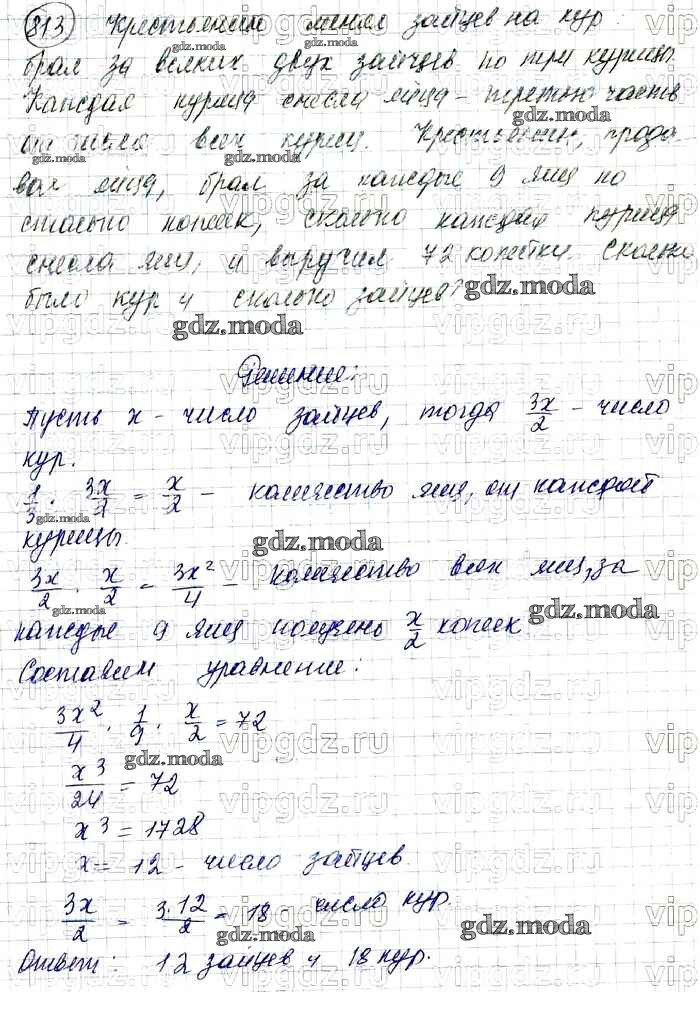 813 Крестьянин менял зайцев на кур:
брал за всяких двух зайцев по три курицы.
Каждая курица снесла яйца - третью часть
от числа всех куриц. Крестьянин, прода-
вая яйца, брал за каждые 9 яиц по
столько копеек, сколько каждая курица
снесла яиц, и выручил 72 копейки. Сколько
было кур и сколько зайцев?
Решение:
Пусть x - число зайцев, тогда 3x/2 - число
кур.
1/3 · 3x/2 = x/2 - количество яиц, от каждой
курицы.
3x/2 · x/2 = 3x²/4 - количество всех яиц, за
каждые 9 яиц получень x/2 копеек
Составим уравнение:
3x²/4 · 1/9 · x/2 = 72
x³/24 = 72
x³ = 1728
x = 12 - число зайцев.
3x/2 = 3·12/2 = 18 число кур.
Ответ: 12 зайцев и 18 кур.
gdz.moda
vipgdz.ru